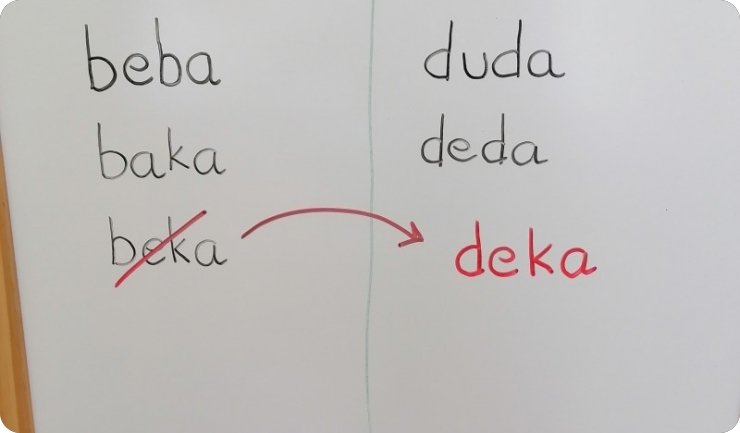 beba
baka
beka
duda
deda
deka